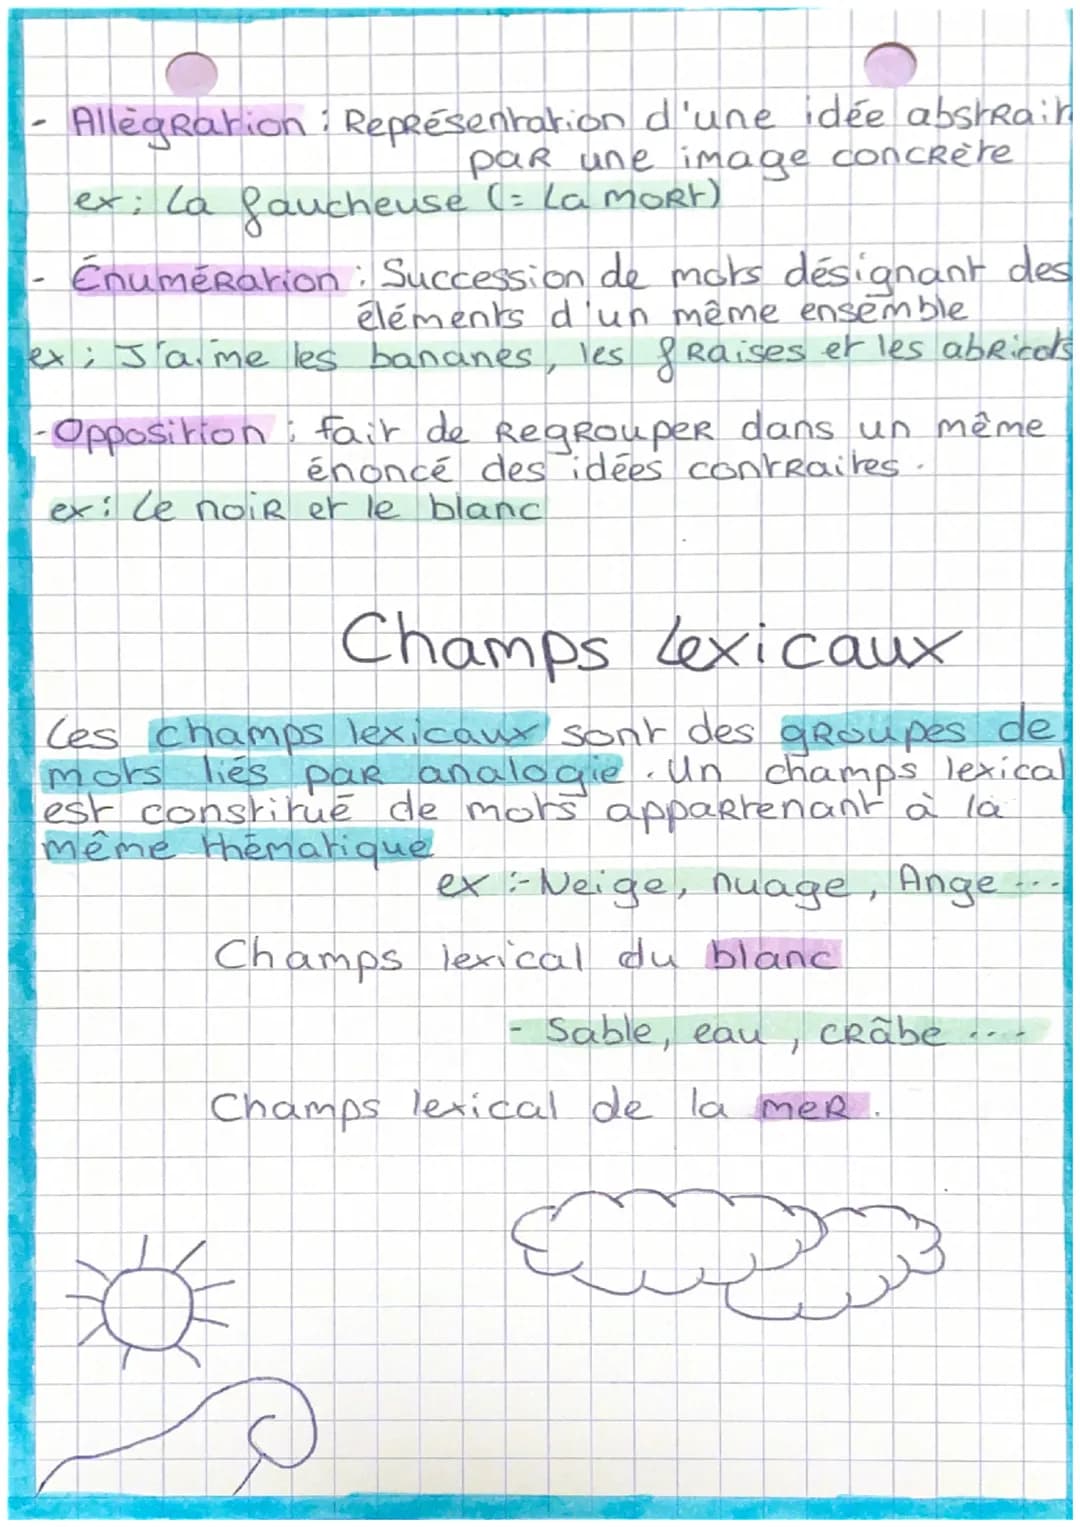 - Allègration : Représentation d'une idée abstrait
par une image concrète
ex : La faucheuse (= La mort)
- Énumération : Succession de mots désignant des
éléments d'un même ensemble
ex : J'aime les bananes, les fraises et les abricots
- Opposition : fait de regrouper dans un même
énoncé des idées contraites.
ex : Le noir et le blanc
Champs Lexicaux
Les champs lexicaux sont des groupes de
mots liés par analogie. Un champs lexical
est constitué de mots appartenant à la
même thématique
ex :- Neige, nuage, Ange ...
Champs lexical du blanc
- Sable, eau, crâbe ....
Champs lexical de la mer.